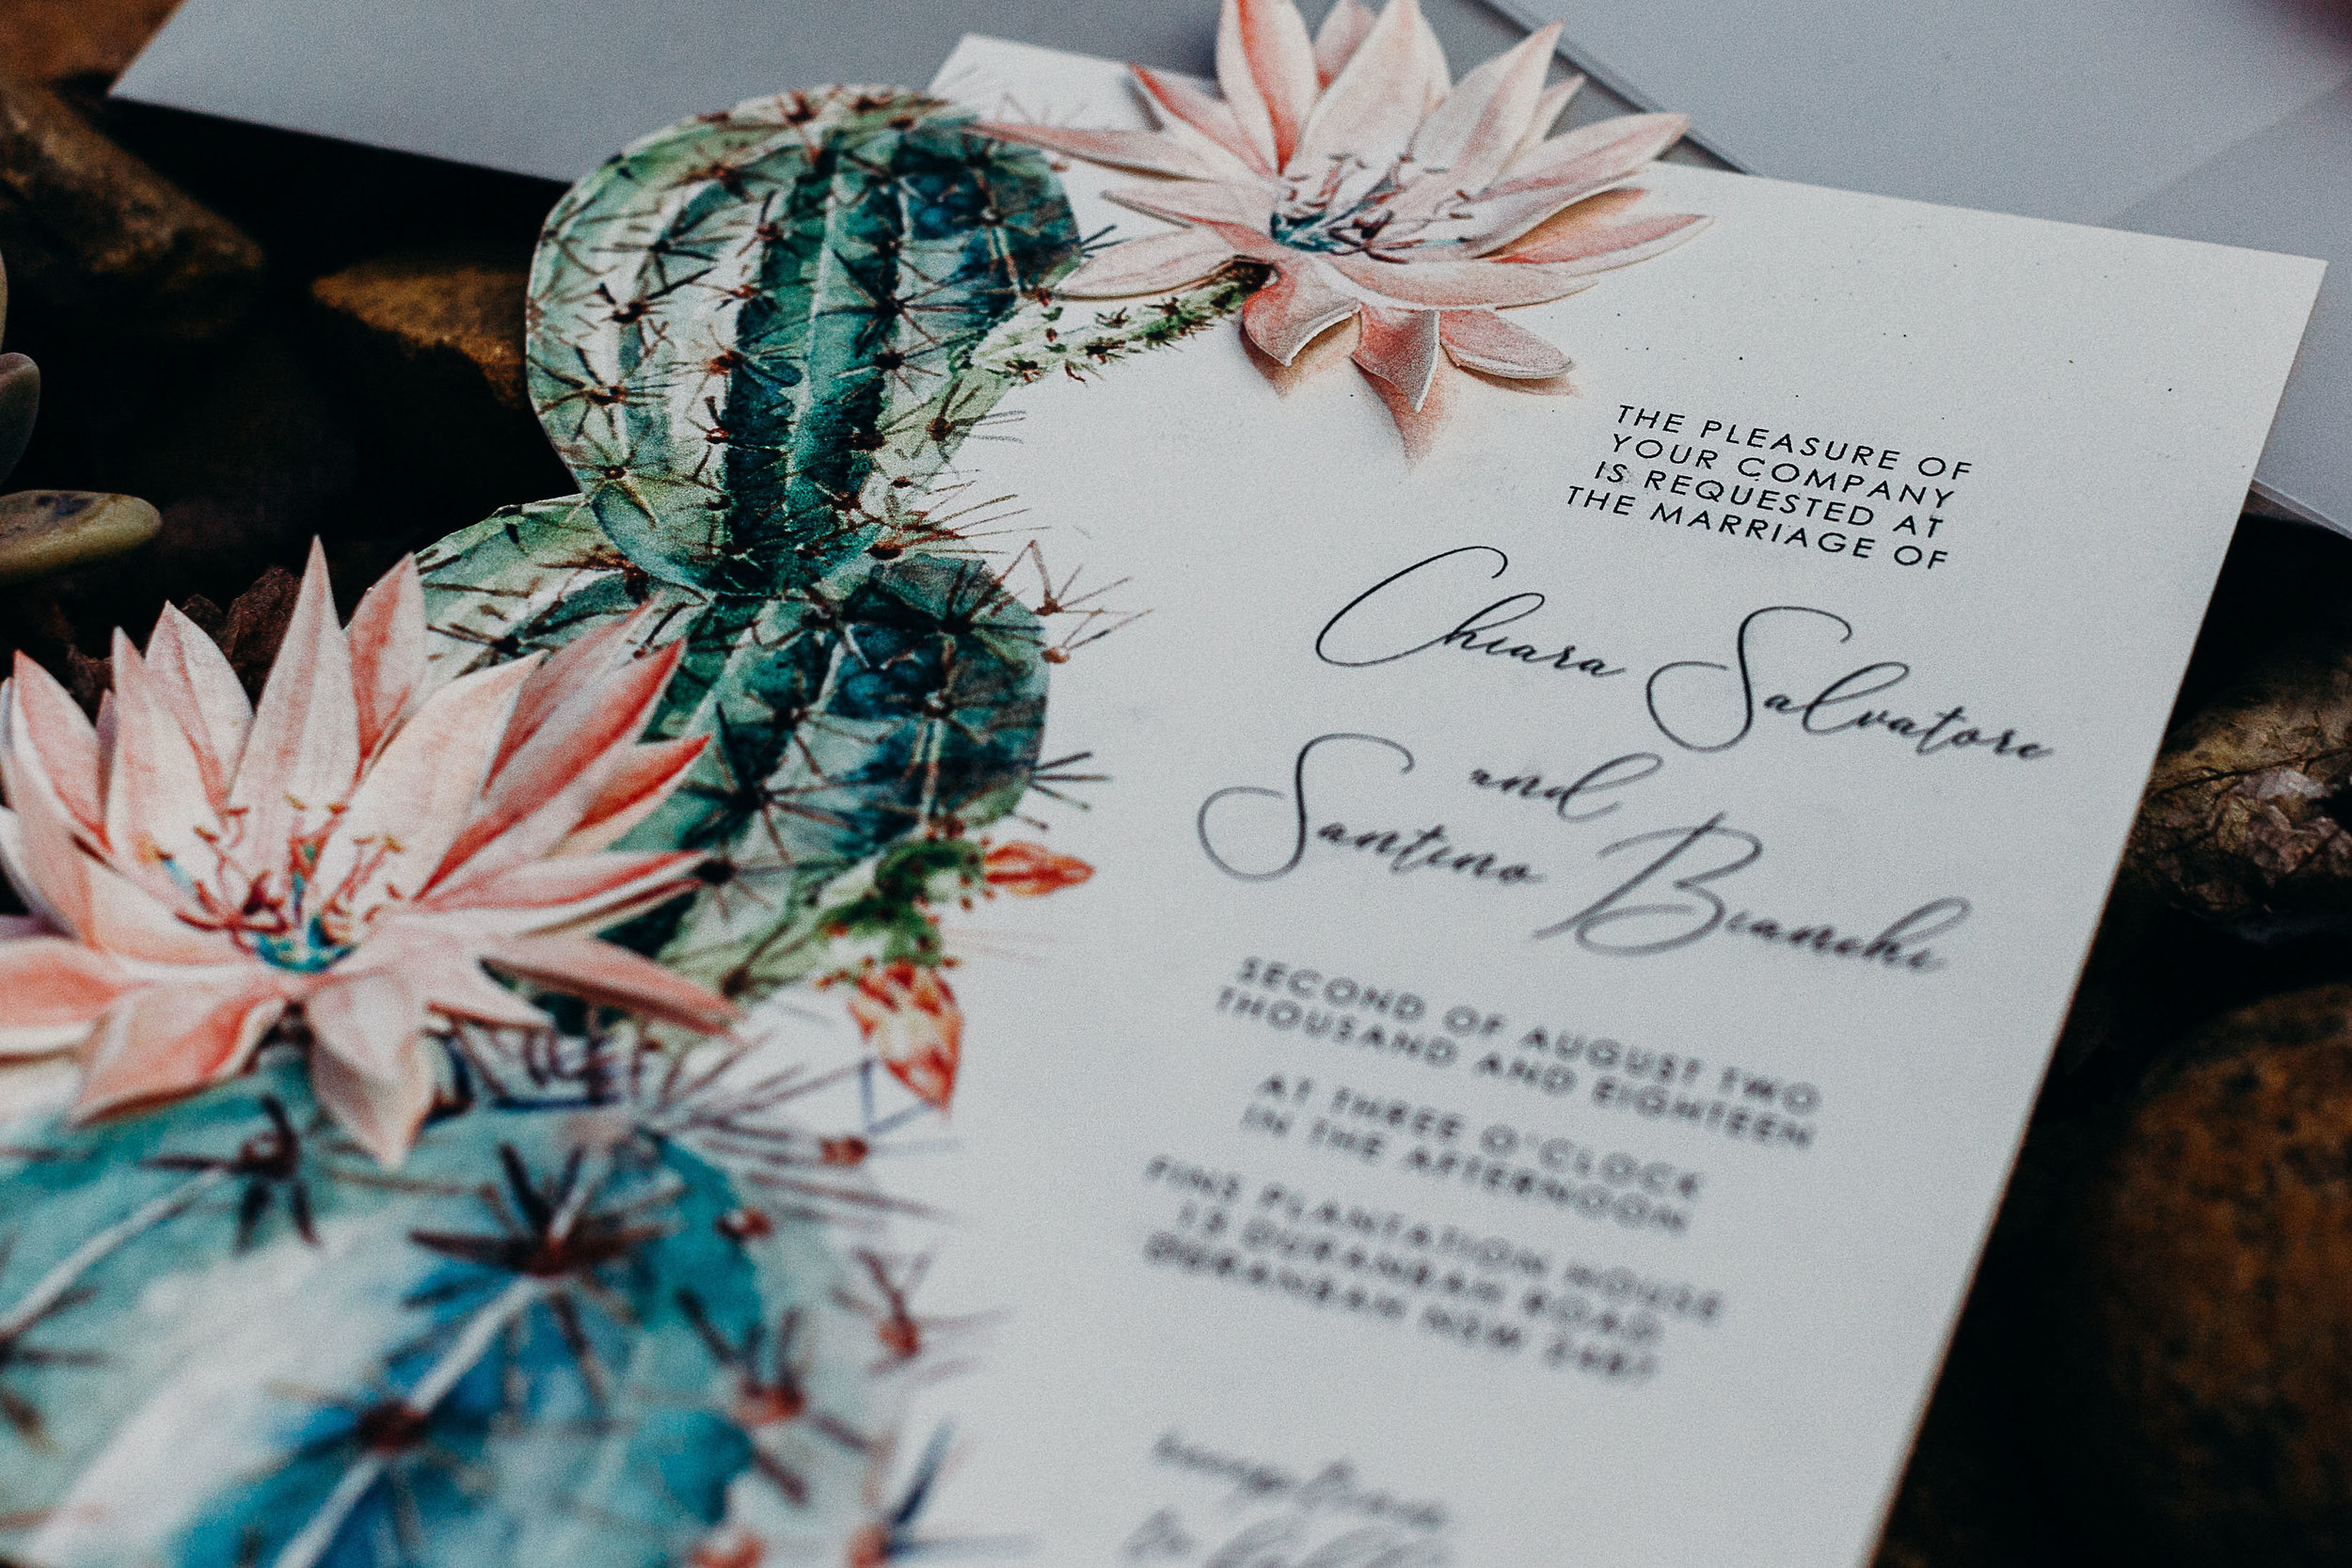 THE PLEASURE OF
YOUR COMPANY
IS REQUESTED AT
THE MARRIAGE OF
Chiara Salvatore
and
Santino Bianchi
SECOND OF AUGUST TWO
THOUSAND AND EIGHTEEN
AT THREE O'CLOCK
IN THE AFTERNOON
PLANTATION HOUSE
DURANBAH ROAD
DURANBAH NSW 2487
reception
to follow